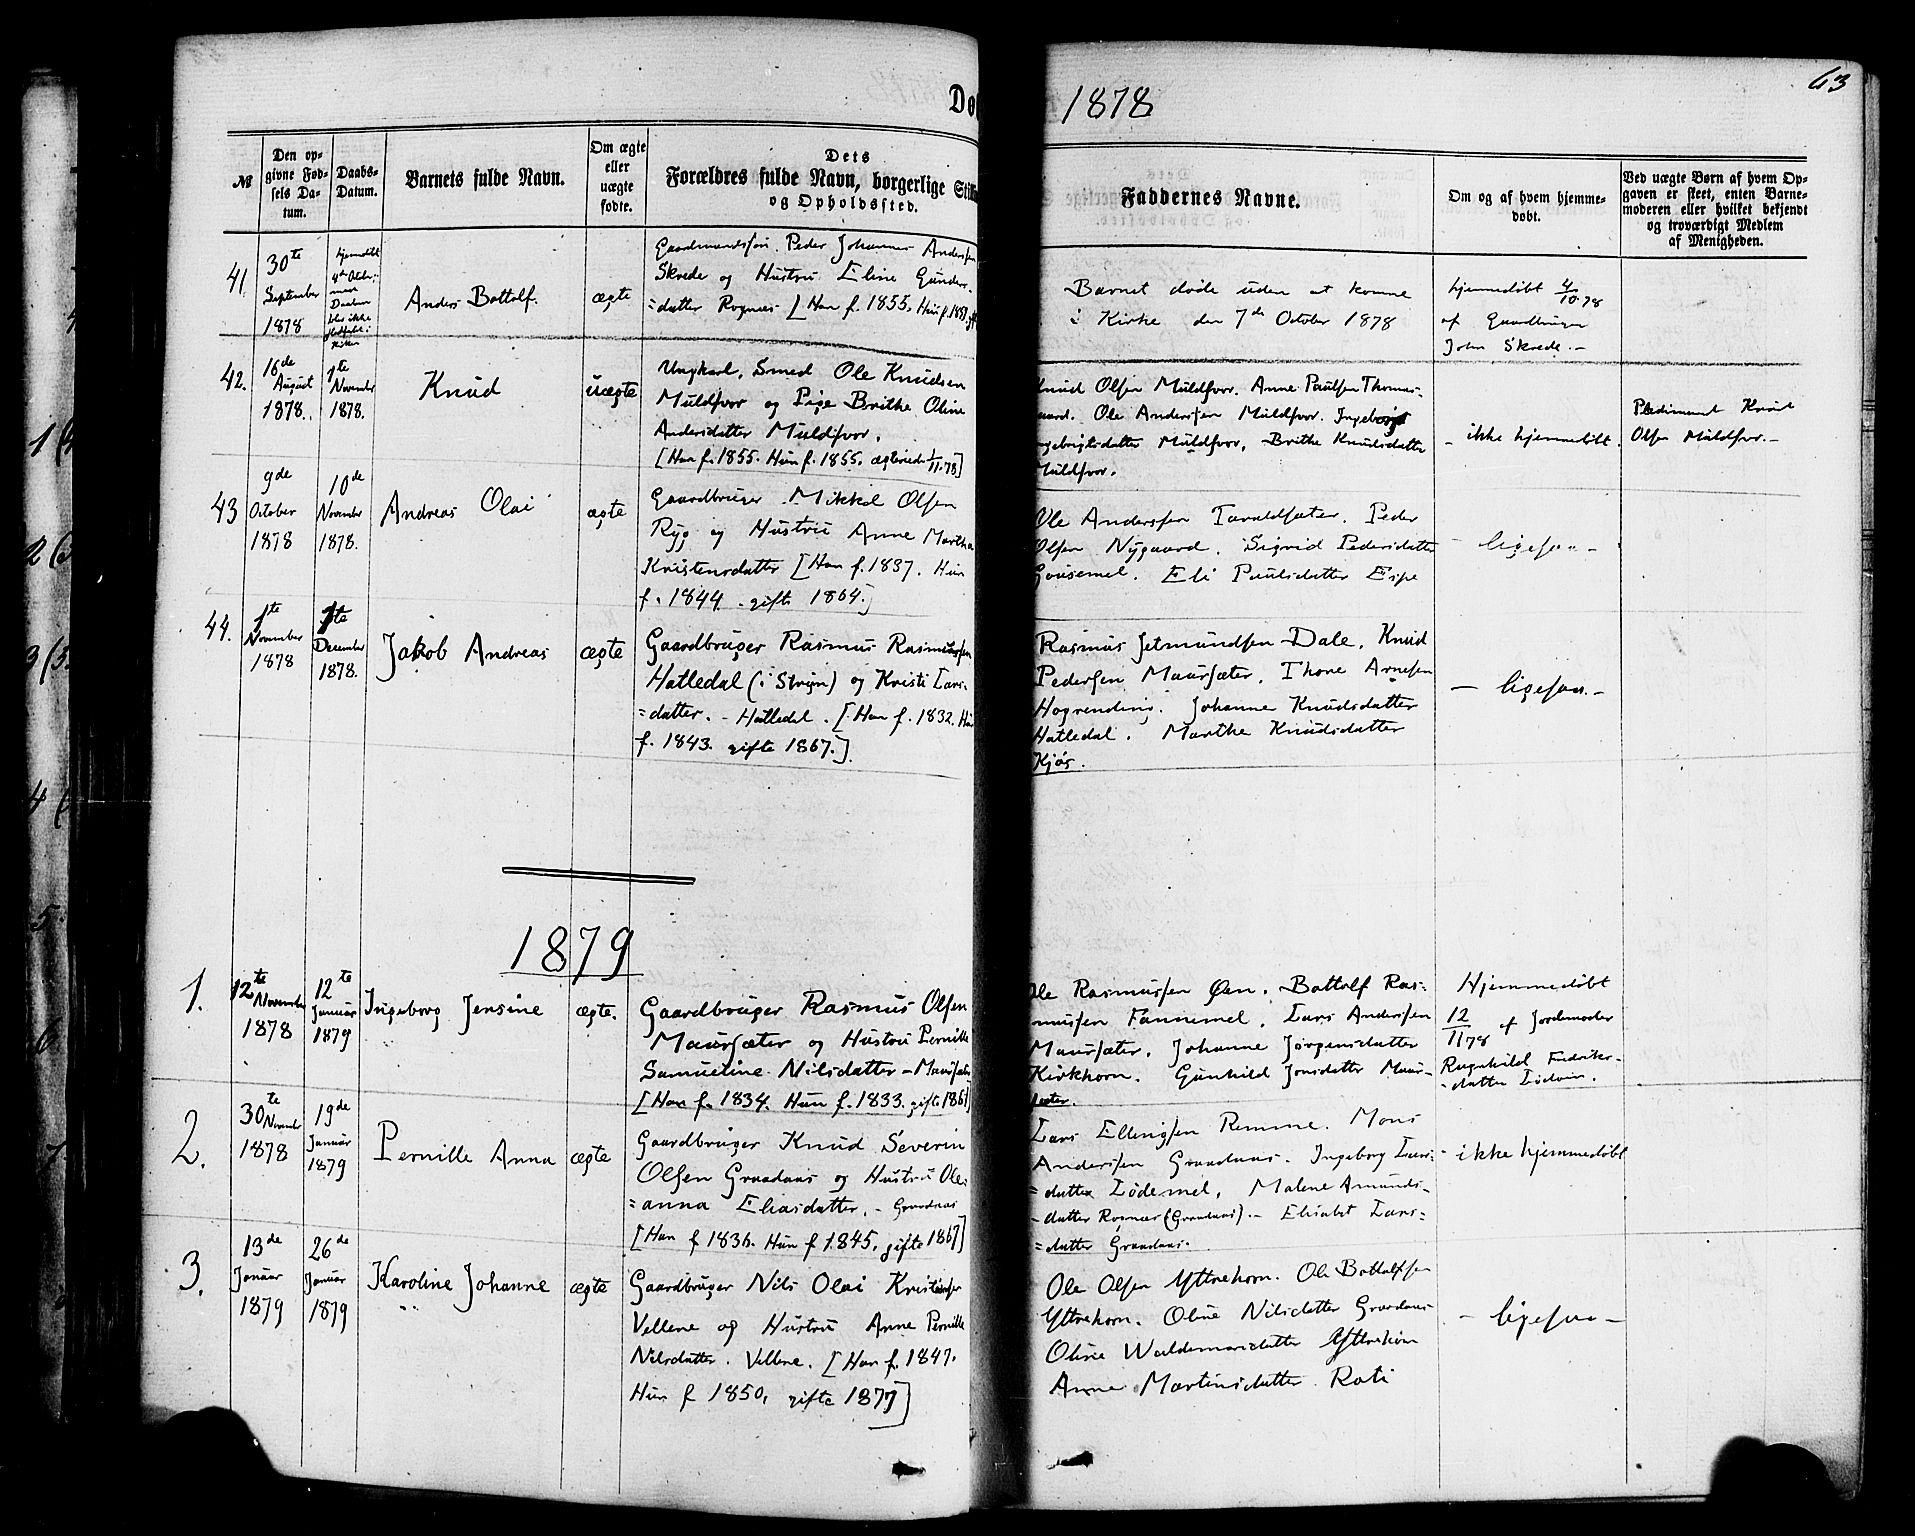 63
Dø
1878
№
Den op-
givne Fød-
sels Da-
tum.
Daabs-
Datum.
Barnets fulde Navn.
Om ægte
eller
uægte
fødte.
Dets
Forældres fulde Navn, borgerlige Still
og Opholdssted.
Faddernes Navne.
Om og af hvem hjemme-
døbt.
Ved uægte Børn af hvem Op-
gaven er skeet, enten Barne-
moderen eller hvilket bekjendt
og troværdigt Medlem
af Menigheden.
41.
30te
September
1878
hjemdøbt
4de Octbr;
men
Daaben
blev ikke
i
Kirken
Anders Bottolf.
ægte
Gaardmandssøn. Peder Johannes Andersen
Skrede og Hustru Eline Gunders-
=datter Rognes. [Han f. 1855. Hun f. 1853
Barnet døde uden at komme
i Kirke den 7de October 1878
hjemmedøbt 4/10.78
af Gaardbruger
John Skrede.-
42.
16de
August
1878.
1te
November
1878.
Knud
uægte
Ungkarl, Smed Ole Knudsen
Muldsvor og Pige Brithe Oline
Andersdatter Muldsvor.
[Han f. 1855. Hun f. 1855. ægteviede 1/11.78]
Knud Olsen Muldsvor. Anne Paulsen Thomas-
gaard. Ole Andersen Muldsvor. Ingeborg
Ingebrigtsdatter Muldsvor, Brithe Knudsdatter
Muldsvor.
- ikke hjemmedøbt.
Knud
Olsen Muldsvor.-
43
9de
October
1878
10de
November
1878.
Andreas Olai
ægte
Gaardbruger Mikkel Olsen
Ryg og Hustru Anne Martha
Kristensdatter [Han f. 1837. Hun
f. 1844. gifte 1864.]
Ole Andersen Taraldsæter. Peder
Olsen Nygaard. Sigrid Pedersdatter
Gousemel. Eli Paulsdatter Espe
- ligesaa -
44.
1te
November
1878
1te
December
1878.
Jakob Andreas
ægte
Gaardbruger Rasmus Rasmussen
Hatledal (i Stryn) og Kristi Lars-
=datter. - Hatledal. [Han f. 1832. Hun
f. 1843. gifte 1867.].
Rasmus Jetmundsen Dale. Knud
Pedersen Maursæter. Thone Arnesen
Hogrending. Johanne Knudsdatter
Hatledal. Marthe Knudsdatter
Kjøs.
- ligesaa. -
1879
1.
12te
November
1878
12te
Januar
1879
Ingeborg Jensine
ægte.
Gaardbruger Rasmus Olsen
Maursæter og Hustru Pernille
Samueline Nilsdatter - Maursæter
[Han f. 1834. Hun f. 1833. gifte 1861]
Ole Rasmussen Øen. Bottolf Ras-
mussen Fannemel. Lars Andersen
Maursæter. Johanne Jørgensdatter
Kirkhorn. Gunhild Jonsdatter Maur-
sæter.
Hjemmedøbt
12/11 78 af Jordemoder
Ragnhild Fredriks-
-datter Lødøin.
2.
30te
Novembr
1878
19de
Januar
1879
Pernille Anna
ægte
Gaardbruger Knud Severin
Olsen Graadaas og Hustru Ole-
=anna Eliasdatter. - Graadaas
[Han f. 1836. Hun f 1845. gifte 1867]
Lars Ellingsen Remme. Mons
Andersen Graadaas. Ingeborg Lars-
=datter Lødemel, Malene Amunds-
-datter Rognes (Graadaas). - Elisabet Lars-
=datter Graadaas.
- ikke hjemmedøbt
3.
13de
Januar
1879
26de
Januar
1879
Karoline Johanne
ægte
Gaardbruger Nils Olai Kristiansen
Vellene og Hustru Anne Pernille
Nilsdatter. Vellene. [Han f. 1847.
Hun f 1850. gifte 1877]
Ole Olsen Yttrehorn. Ole Bottolfsen
Yttrehorn. Oline Nilsdatter Graadaas
Oline Waldemarsdatter Yttrehorn
Anne Martinsdatter Roti
- ligesaa -